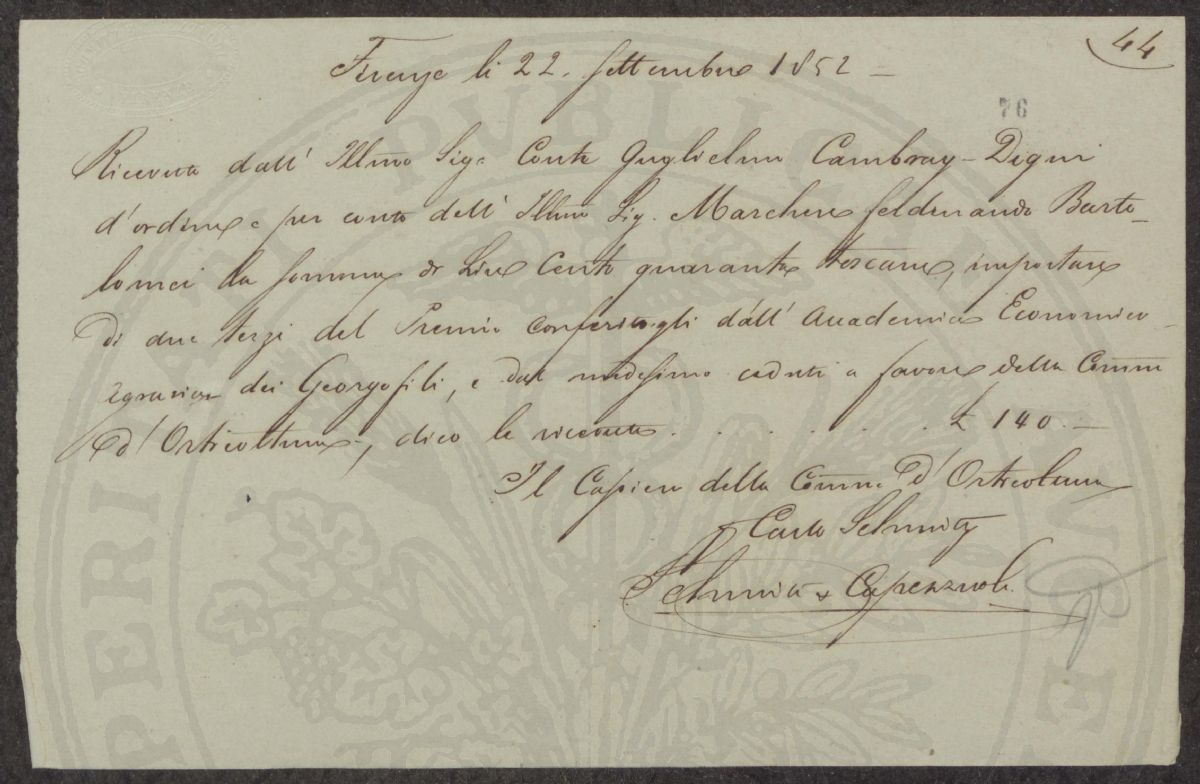 44
Firenze li 22. Settembre 1852 —
76
Ricevuta dall' Illmo Sigr Conte Guglielmo Cambray-Digni
d'ordine e per conto dell' Illmo Sig. Marchese Ferdinando Barto-
lomei la somma di Lire Cento quaranta toscane, importare
di due terzi del Premio conferitogli dall' Accademia Economico-
agraria dei Georgofili, e dal medesimo ceduti a favore della Comne
d' Orticoltura, dico le ricevute . . . . . . . £ 140. —
Il Cassiere della Comne d' Orticoltura
Carlo Schmitz
Schmitz & Capezzuoli
PERI ATI PUBLICAE